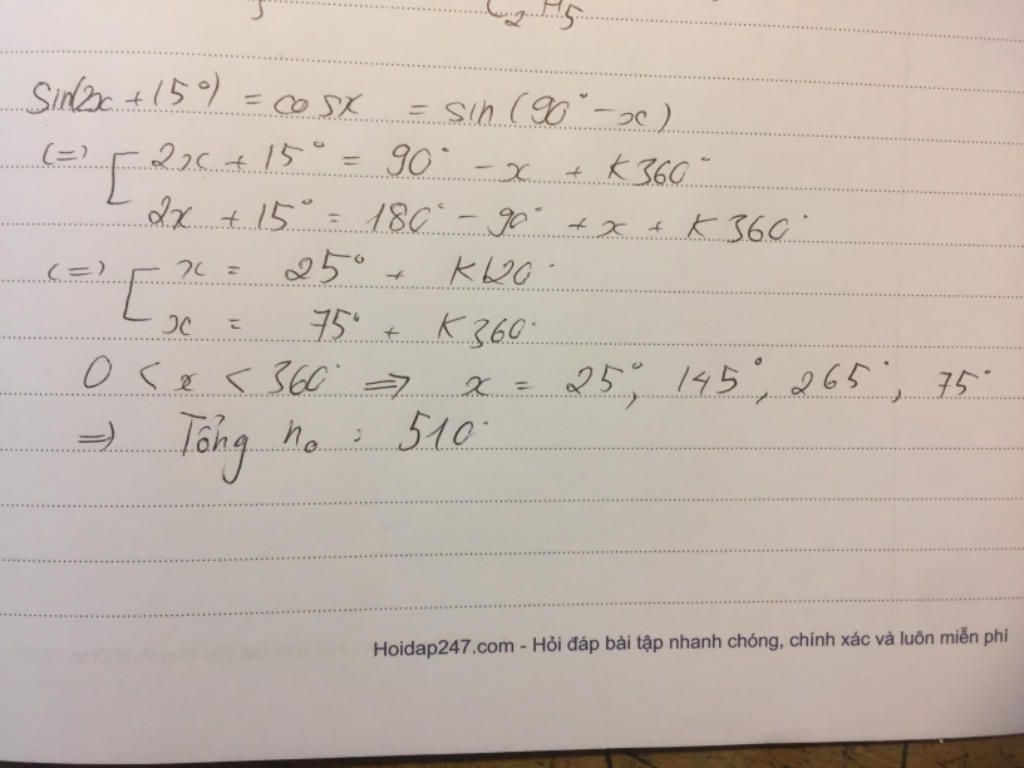 C₂H₅
Sin(2x + 15°) = cosx = sin(90° - x)
(=) [ 2x + 15° = 90° - x + K360°
2x + 15° = 180° - 90° + x + K360°
(=) [ x = 25° + K120°
x = 75° + K360°
0 < x < 360° => x = 25°, 145°, 265°, 75°
=> Tổng no : 510°
Hoidap247.com - Hỏi đáp bài tập nhanh chóng, chính xác và luôn miễn phí